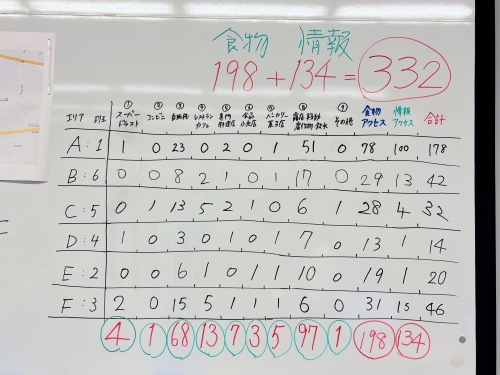 食物 情報
198+134=332
エリア 班 ①スーパー ドラッグスト ②コンビニ ③自販機 ④レストラン カフェ ⑤専門 料理店 ⑥食品 小売店 ⑦ベーカリー 菓子店 ⑧ ⑨その他 食物アクセス 情報アクセス 合計
A:1 1 0 23 0 2 0 1 51 0 78 100 178
B:6 0 0 8 2 1 0 1 17 0 29 13 42
C:5 0 1 13 5 2 1 0 6 1 28 4 32
D:4 1 0 3 0 1 0 1 7 0 13 1 14
E:2 0 0 6 1 0 1 1 10 0 19 1 20
F:3 2 0 15 5 1 1 1 6 0 31 15 46
4 1 68 13 7 3 5 97 1 198 134